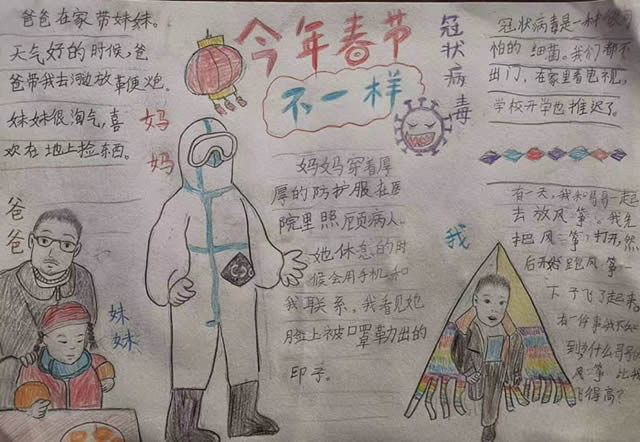 今年春节
不一样
爸爸在家带妹妹。
天气好的时候,爸
爸带我去河边放鞭炮。
妹妹很淘气,喜
欢在地上捡东西。
妈妈
爸爸
妹妹
冠状病毒
妈妈穿着厚
厚的防护服在医
院里照顾病人。
她休息的时
候会用手机和
我联系,我看见她
脸上被口罩勒出的
印子。
冠状病毒是一种
怕的细菌。我们都不
出门,在家里看电视,
学校开学也推迟了。
我
有一天,我和哥哥一起
去放风筝。我先
把风筝打开,然
后开始跑风筝一
下子飞了起来。
有一件事我不
到为什么哥哥
风筝比我
飞得高?